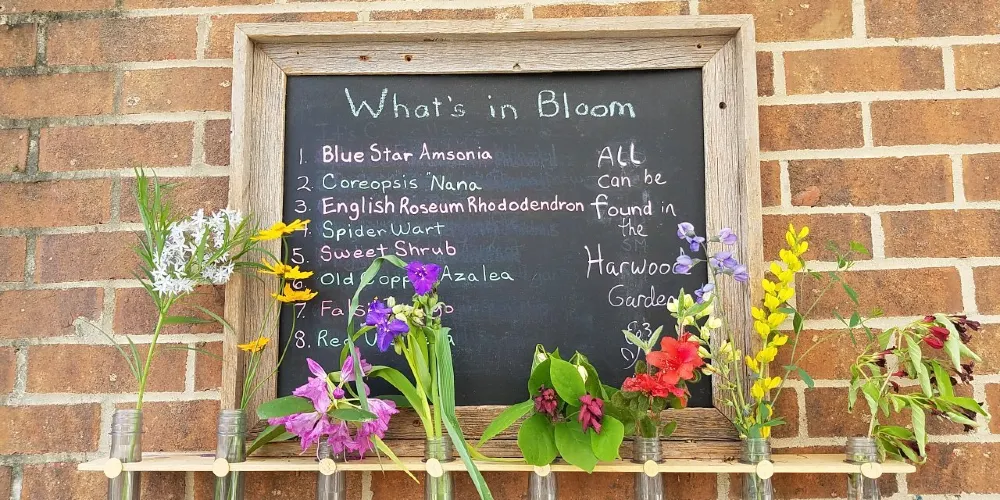 What's in Bloom
1. Blue Star Amsonia
2 Coreopsis "Nana
3. English Roseum Rhododendron
4. Spider Wart
5. Sweet Shrub
6. Old Azalea
7.
8.
ALL
can be
found in
the
Harwood
Garden